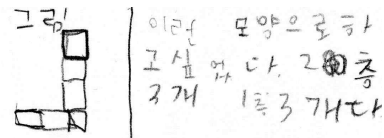 그림
이런 모양으로 하
고 싶었다. 2층
3개 1층 3개다